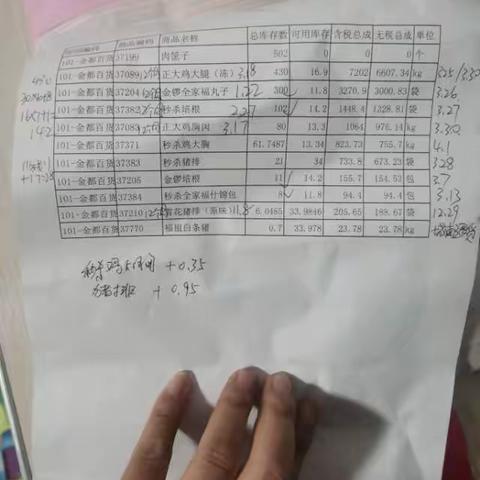 商品编码 商品名称 总库存数 可用库存 含税总成 无税总成 单位
101-金都百货 37199 肉筐子 502 0 0 0 个
101-金都百货 37089 正大鸡大腿（冻） 3.18 430 16.9 7202 6607.34 kg 3.25/3.30
101-金都百货 37204 金锣全家福丸子 1.22 300 11.8 3270.9 3000.83 袋 3.26
101-金都百货 37382 秒杀培根 2.27 102 14.2 1448.4 1328.81 袋 3.27
142 101-金都百货 37083 正大鸡胸肉 3.17 80 13.3 1064 976.14 kg 3.30
101-金都百货 37371 秒杀鸡大胸 61.7487 13.34 823.73 755.7 kg 4.1
101-金都百货 37383 秒杀猪排 21 34 733.8 673.23 袋 3.28
101-金都百货 37205 金锣培根 11 14.2 155.7 154.53 包 3.7
101-金都百货 37384 秒杀全家福什锦包 8 11.8 94.4 94.4 包 3.13
101-金都百货 37210 雪花猪排（原味） 11.8 6.0485 33.9846 205.65 188.67 袋 12.29
101-金都百货 37770 福祖白条猪 0.7 33.978 23.78 23.78 kg
+0.35
+0.95